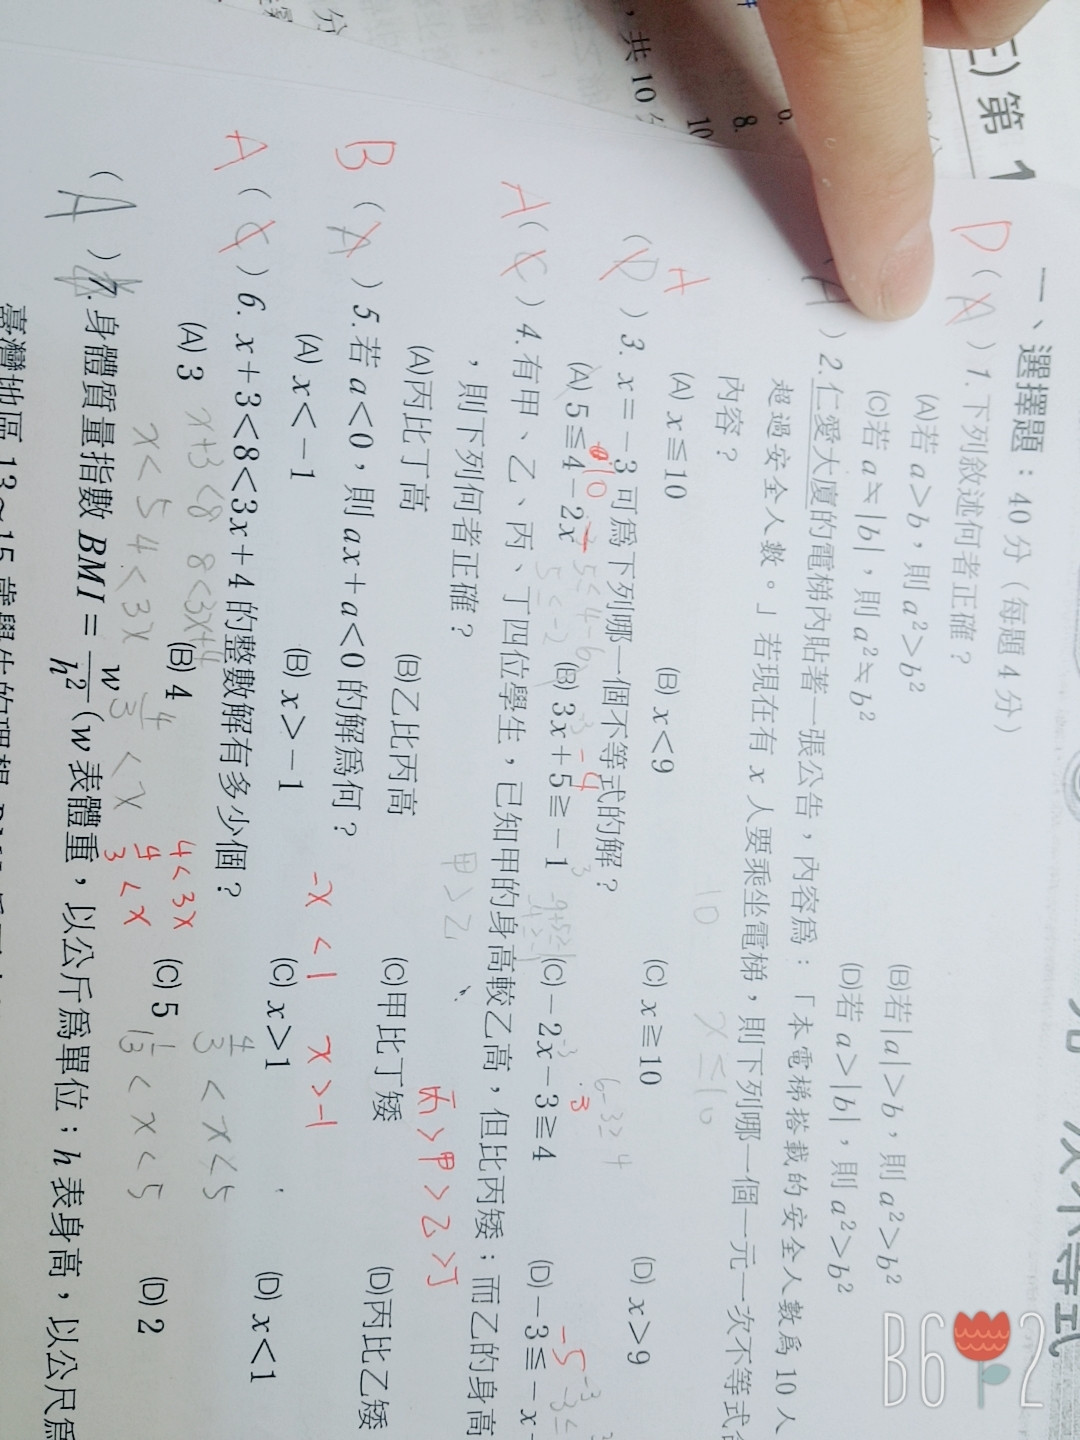 三)第1
一次不等式
,共10分
8.
10
一、選擇題:40分(每題4分)
D(A)1.下列敘述何者正確?
(A)若a>b,則a²>b² (B)若|a|>b,則a²>b²
(C)若a≒|b|,則a²≒b² (D)若a>|b|,則a²>b²
(A)2.仁愛大廈的電梯內貼著一張公告,內容為:「本電梯搭載的安全人數為10人
超過安全人數。」若現在有x人要乘坐電梯,則下列哪一個一元一次不等式
內容?
10 x≤10
(A) x≦10 (B) x<9 (C) x≧10 (D) x>9
A(D)3. x=-3可為下列哪一個不等式的解?
(A) 5≦4-2x (B) 3x+5≧-1 (C)-2x-3≧4 (D)-3≦-x-
A(C)4.有甲、乙、丙、丁四位學生,已知甲的身高較乙高,但比丙矮;而乙的身高
,則下列何者正確?
甲>乙
丙>甲>乙>丁
(A)丙比丁高 (B)乙比丙高 (C)甲比丁矮 (D)丙比乙矮
B(A)5.若a<0,則ax+a<0的解為何?
-x<1 x>-1
(A) x<-1 (B) x>-1 (C) x>1 (D) x<1
A(C)6. x+3<8<3x+4的整數解有多少個?
(A) 3 (B) 4 (C) 5 (D) 2
x+3<8 8<3x+4
x<5 4<3x 4/3<x
4<3x
4/3<x
4/3<x<5
1 1/3<x<5
(A)7.身體質量指數BMI=w/h²(w表體重,以公斤為單位;h表身高,以公尺為
臺灣地區13~15歲學生的理想BMI
B6 2